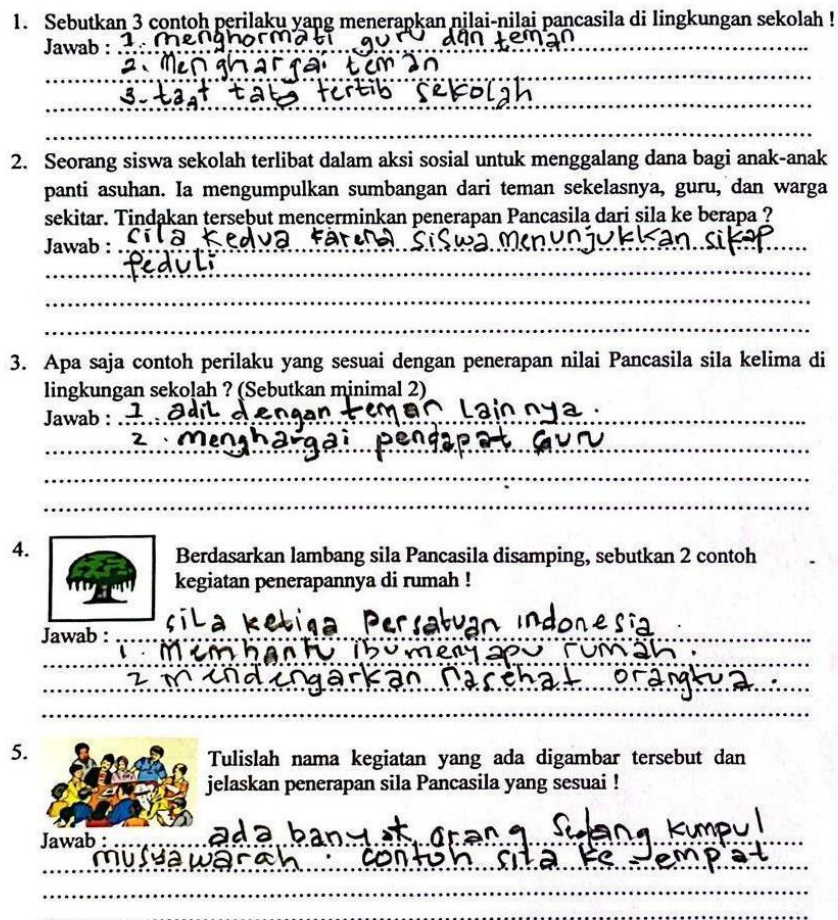 1. Sebutkan 3 contoh perilaku yang menerapkan nilai-nilai pancasila di lingkungan sekolah !
Jawab : 1. menghormati guru dan teman
2. Menghargai teman
3. taat tata tertib sekolah
2. Seorang siswa sekolah terlibat dalam aksi sosial untuk menggalang dana bagi anak-anak
panti asuhan. Ia mengumpulkan sumbangan dari teman sekelasnya, guru, dan warga
sekitar. Tindakan tersebut mencerminkan penerapan Pancasila dari sila ke berapa ?
Jawab : sila kedua karena siswa menunjukkan sikap
peduli
3. Apa saja contoh perilaku yang sesuai dengan penerapan nilai Pancasila sila kelima di
lingkungan sekolah ? (Sebutkan minimal 2)
Jawab : 1. adil dengan teman Lainnya.
2. menghargai pendapat Guru
4. Berdasarkan lambang sila Pancasila disamping, sebutkan 2 contoh
kegiatan penerapannya di rumah !
Jawab : siLa ketiga Persatuan indonesia.
1. Membantu ibu menyapu rumah.
2 mendengarkan nasehat orangtua.
5. Tulislah nama kegiatan yang ada digambar tersebut dan
jelaskan penerapan sila Pancasila yang sesuai !
Jawab : ada banyak orang sedang kumpul
musyawarah. contoh sila ke-empat